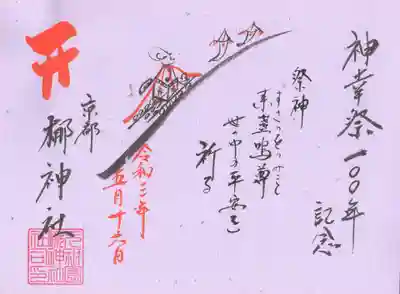 神幸祭一〇〇年
記念
祭神
すさのをのみこと
素盞嗚尊
世の中の平安を
祈る
令和三年
五月十六日
京都
梛神社